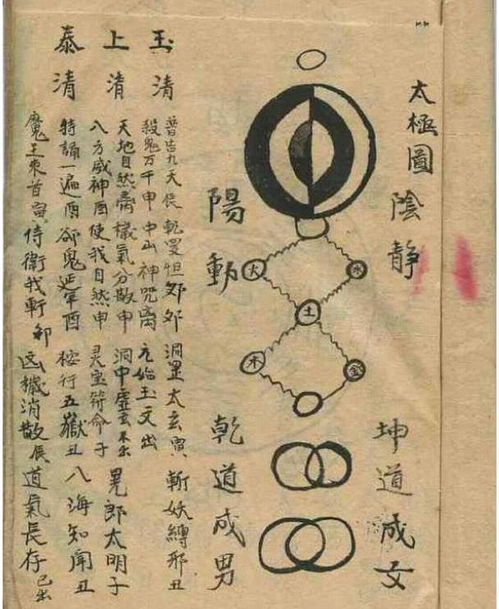 太極圖
陰靜
陽動
火
水
土
木
金
坤道成女
乾道成男
玉清
上清
泰清
普告九天辰 乾旻怛那卯 洞罡太玄寅 斬妖縛邪丑
殺鬼万千申 中山神咒离 元始玉文出
天地自然 穢氣分散申 洞中虛玄未出 晃郎太明子
八方威神酉 使我自然申 灵宝符命子
特誦一遍酉 卻鬼延年酉 桉行五嶽丑 八海知聞丑
魔王束首寅 侍衛我軒卯 凶穢消散辰 道氣長存已出